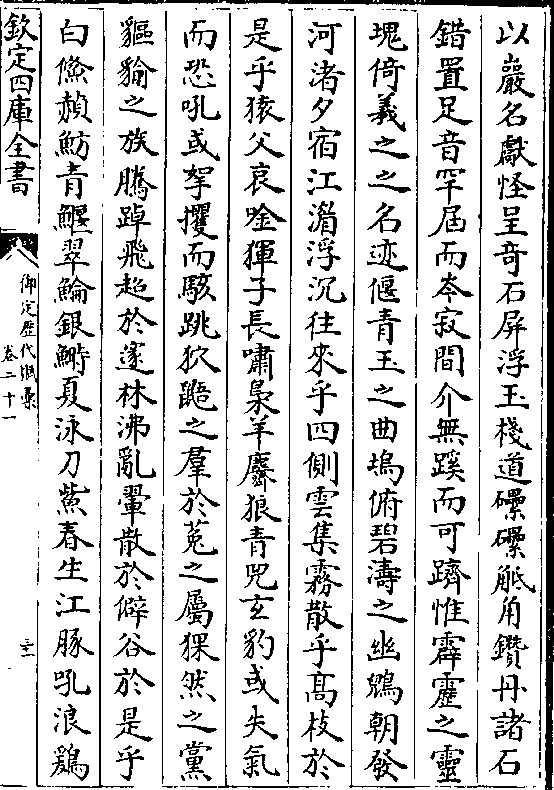 以巖名獻怪呈竒石屏浮玉棧道礧礧觝角鑽丹諸石
錯置足音罕屆而岑寂間介無蹊而可躋惟霹靂之靈
塊倚義之之名迹偃青玉之曲塢俯碧濤之幽鴟朝發
河渚夕宿江湄浮沉往來乎四側雲集霧散乎髙枝於
是乎猿父哀唫猩子長嘯梟羊麢狼青兕玄豹或失氣
而恐吼或拏攫而駭跳狖䶉之羣於菟之屬猓然之黨
貙貐之族騰踔飛超於邃林沸亂翬散於僻谷於是乎
白鯈赬魴青鰋翠鯩銀鰣夏泳刀鮆春生江豚吼浪鷁
欽定四庫全書
御定歴代賦彙
卷二十一
三十一